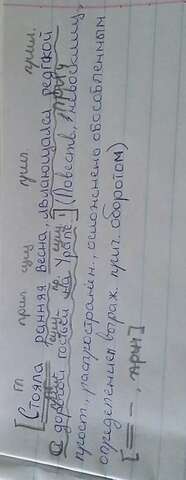 гл прил сущ прич. прил.
[Стояла ранняя весна, являющаяся редкой
и дорогой гостьей на Урале.] (Повеств., невосклиц.,
прост., распространен., осложнено обособленным
определением выраж. прич. оборотом)
[= —, |прич|]